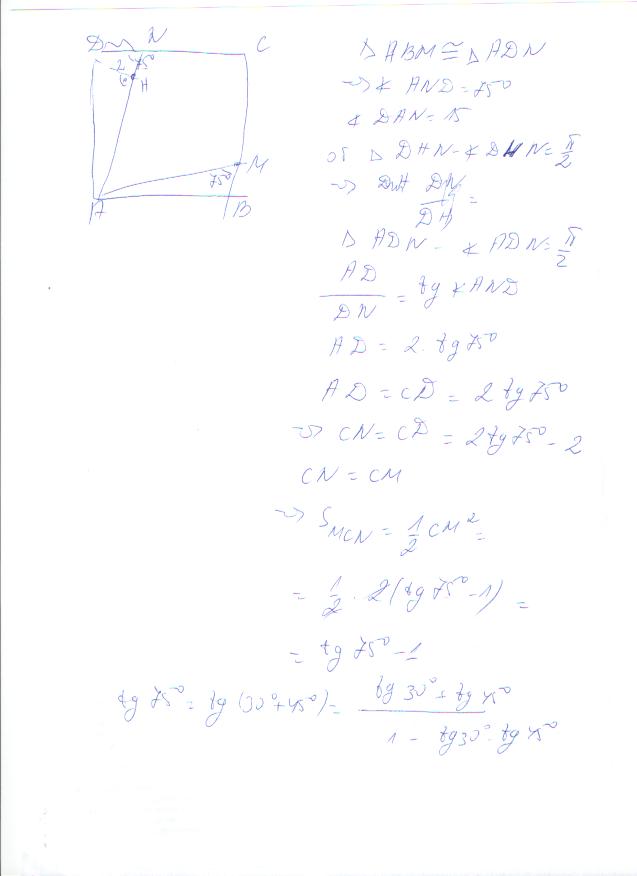 D N C
2 75°
H
M
75°
A B
△ ABM ≅ △ ADN
→ ∡ AND = 75°
∡ DAN = 15
от △ DHN - ∡ DHN = π/2
→ DN/DH =
△ ADN - ∡ ADN = π/2
AD/DN = tg ∡ AND
AD = 2. tg 75°
AD = CD = 2 tg 75°
→ CN = CD = 2 tg 75° - 2
CN = CM
→ S_MCN = 1/2 CM² =
= 1/2 . 2(tg 75° - 1) =
= tg 75° - 1
tg 75° = tg (30° + 45°) = (tg 30° + tg 45°)/(1 - tg 30° . tg 45°)